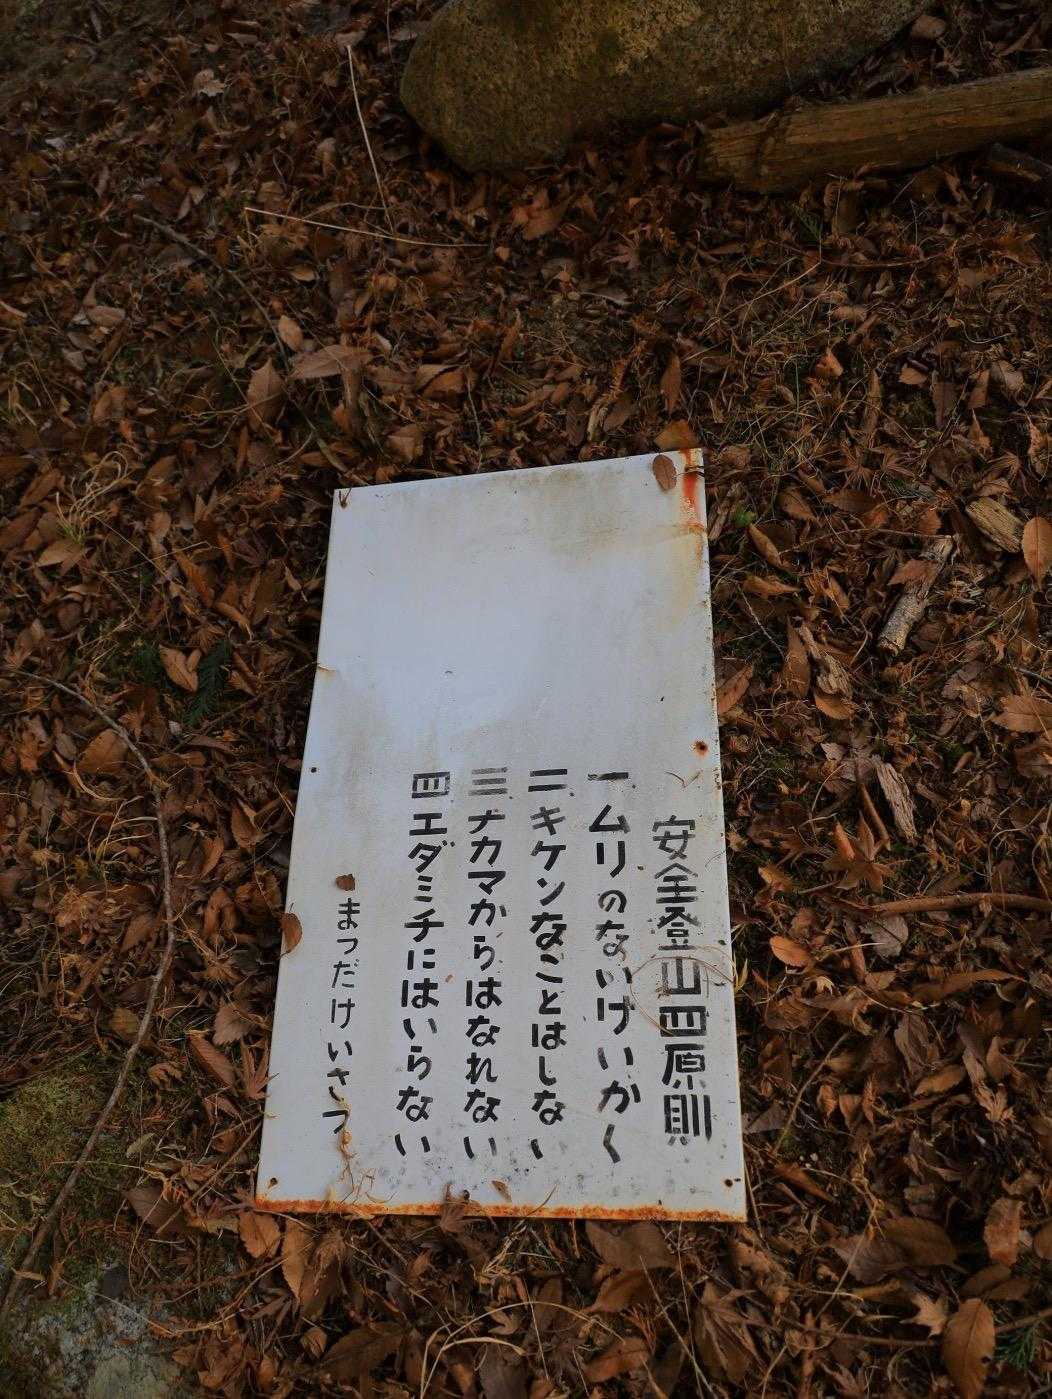 安全登山四原則
一ムリのないけいかく
二キケンなことはしない
三ナカマからはなれない
四エダミチにはいらない
まつだけいさつ